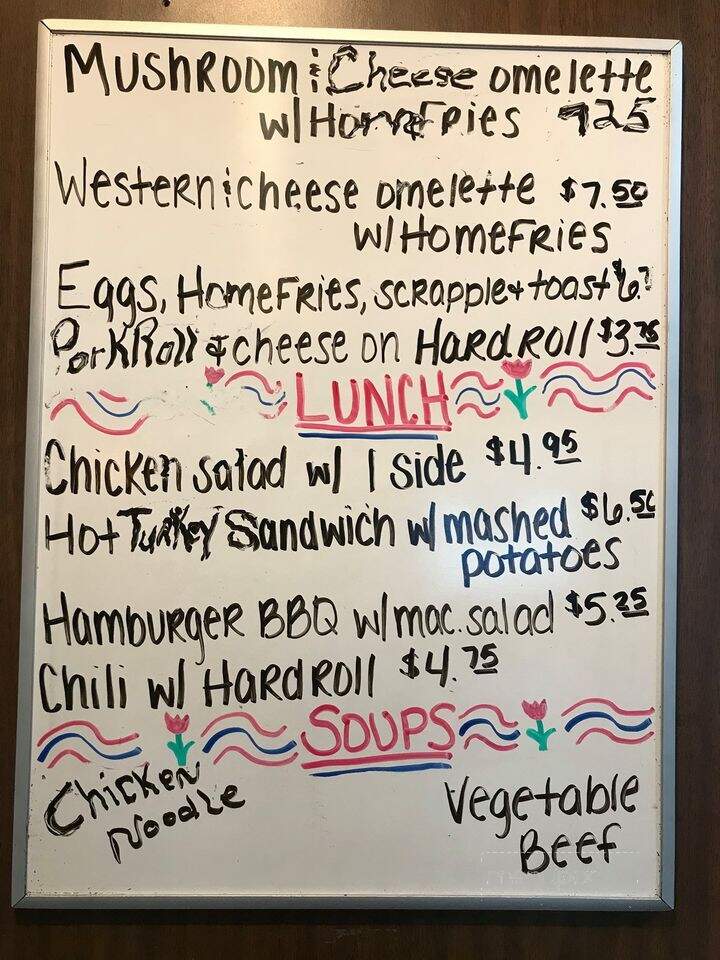 MUSHROOM & Cheese omelette
w/ HomeFries 725
Western & cheese omelette $7.50
W/ HomeFRIES
Eggs, HomeFRIES, scrapple & toast
PorkRoll & cheese on HardRoll $3.75
LUNCH
Chicken salad w/ 1 side $4.95
Hot Turkey Sandwich w/ mashed $6.50
potatoes
Hamburger BBQ w/ mac. salad $5.25
Chili w/ HardRoll $4.75
SOUPS
Chicken
Noodle
Vegetable
Beef